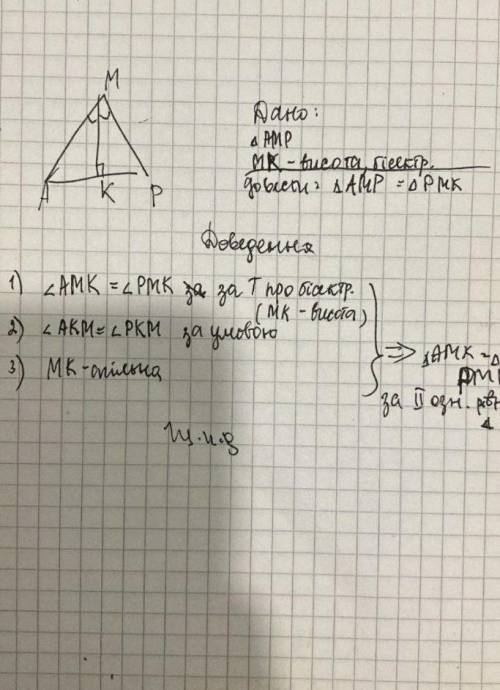 M
A
K
P
Дано:
△AMP
MK - висота, бісектр.
Довести: △AMP = △PMK
Доведення
1) ∠AMK = ∠PMK за за Т про бісектр.
(MK - висота)
2) ∠AKM = ∠PKM за умовою
3) MK - спільна
⇒ △AMK = △
PMK
за II озн. рівн.
△
Щ.и.в